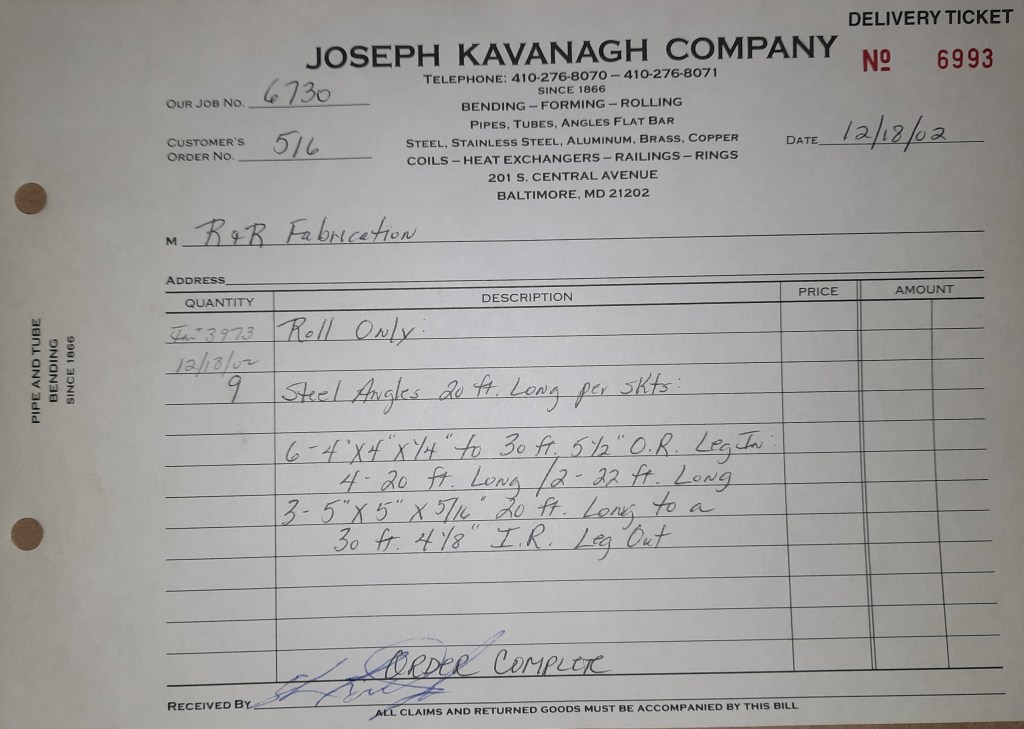 DELIVERY TICKET
JOSEPH KAVANAGH COMPANY
Nº 6993
TELEPHONE: 410-276-8070 – 410-276-8071
SINCE 1866
OUR JOB NO. 6730
BENDING – FORMING – ROLLING
PIPES, TUBES, ANGLES FLAT BAR
CUSTOMER'S
ORDER NO. 516
STEEL, STAINLESS STEEL, ALUMINUM, BRASS, COPPER
DATE 12/18/02
COILS – HEAT EXCHANGERS – RAILINGS – RINGS
201 S. CENTRAL AVENUE
BALTIMORE, MD 21202
M R&R Fabrication
ADDRESS
QUANTITY DESCRIPTION PRICE AMOUNT
3973 Roll Only:
12/18/02
9 Steel Angles 20 ft. Long per skts:
6-4"X4"X1/4" to 30 ft. 5 1/2" O.R. Leg In:
4- 20 ft. Long / 2- 22 ft. Long
3- 5" X 5" X 5/16" 20 ft. Long to a
30 ft. 4 1/8" I.R. Leg Out
ORDER COMPLETE
RECEIVED BY
ALL CLAIMS AND RETURNED GOODS MUST BE ACCOMPANIED BY THIS BILL
PIPE AND TUBE
BENDING
SINCE 1866